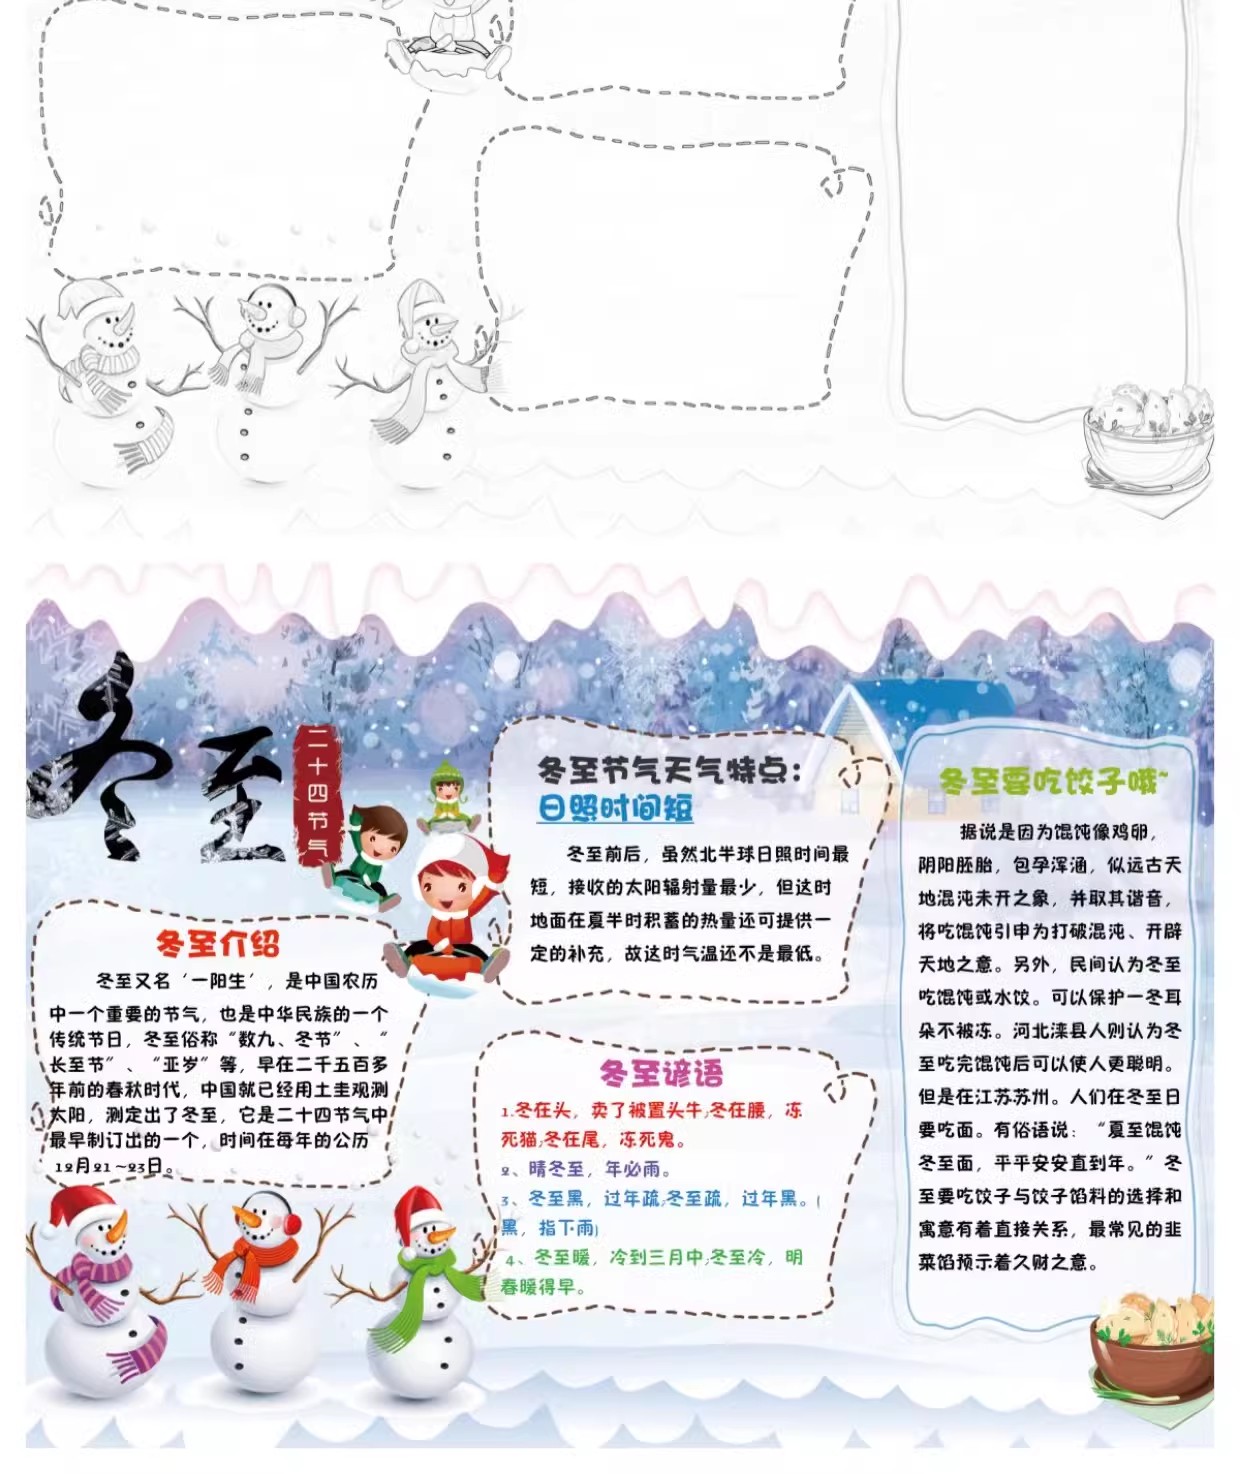 冬至
二十四节气
冬至介绍
冬至又名‘一阳生’，是中国农历
中一个重要的节气，也是中华民族的一个
传统节日，冬至俗称“数九、冬节”、“
长至节”、“亚岁”等，早在二千五百多
年前的春秋时代，中国就已经用土圭观测
太阳，测定出了冬至，它是二十四节气中
最早制订出的一个，时间在每年的公历
12月21~23日。
冬至节气天气特点：
日照时间短
冬至前后，虽然北半球日照时间最
短，接收的太阳辐射量最少，但这时
地面在夏半时积蓄的热量还可提供一
定的补充，故这时气温还不是最低。
冬至谚语
1.冬在头，卖了被置头牛;冬在腰，冻
死猫;冬在尾，冻死鬼。
2、晴冬至，年必雨。
3、冬至黑，过年疏;冬至疏，过年黑。(
黑，指下雨)
4、冬至暖，冷到三月中;冬至冷，明
春暖得早。
冬至要吃饺子哦~
据说是因为馄饨像鸡卵，
阴阳胚胎，包孕浑涵，似远古天
地混沌未开之象，并取其谐音，
将吃馄饨引申为打破混沌、开辟
天地之意。另外，民间认为冬至
吃馄饨或水饺。可以保护一冬耳
朵不被冻。河北滦县人则认为冬
至吃完馄饨后可以使人更聪明。
但是在江苏苏州。人们在冬至日
要吃面。有俗语说：“夏至馄饨
冬至面，平平安安直到年。”冬
至要吃饺子与饺子馅料的选择和
寓意有着直接关系，最常见的韭
菜馅预示着久财之意。